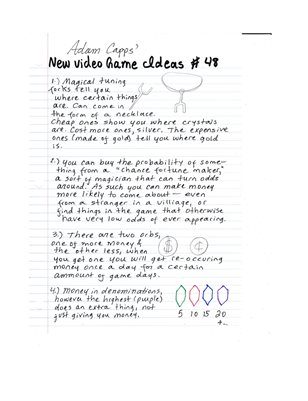 Adam Capps'
New video Game Ideas #48
1.) Magical tuning
forks tell you
where certain things
are. Can come in
the form of a necklace.
Cheap ones show you where crystals
are. Cost more ones, silver. The expensive
ones (made of gold) tell you where gold
is.
2.) you can buy the probability of some-
thing from a "Chance fortune, maker,"
a sort of magician that can turn odds
around." As such you can make money
more likely to come about - even
from a stranger in a villiage, or
find things in the game that otherwise
have very low odds of ever appearing.
3.) There are two orbs,
one of more money &
the other less, when
$ ¢
you get one you will get re-occuring
money once a day for a certain
ammount of game days.
4.) Money in denominations,
howeve the highest (purple)
does an extra thing, not
just giving you money.
5 10 15 20
+...